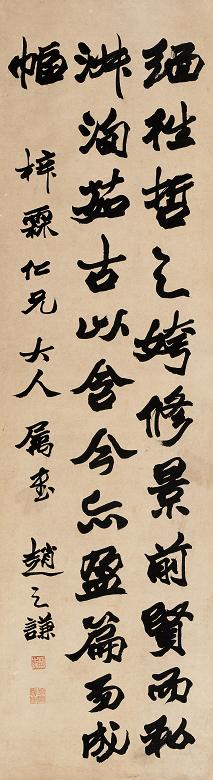 緬往哲之姱修景前賢而私
淑涵茹古以含今亦盈篇而成
幅
梓霖仁兄大人属書 趙之謙